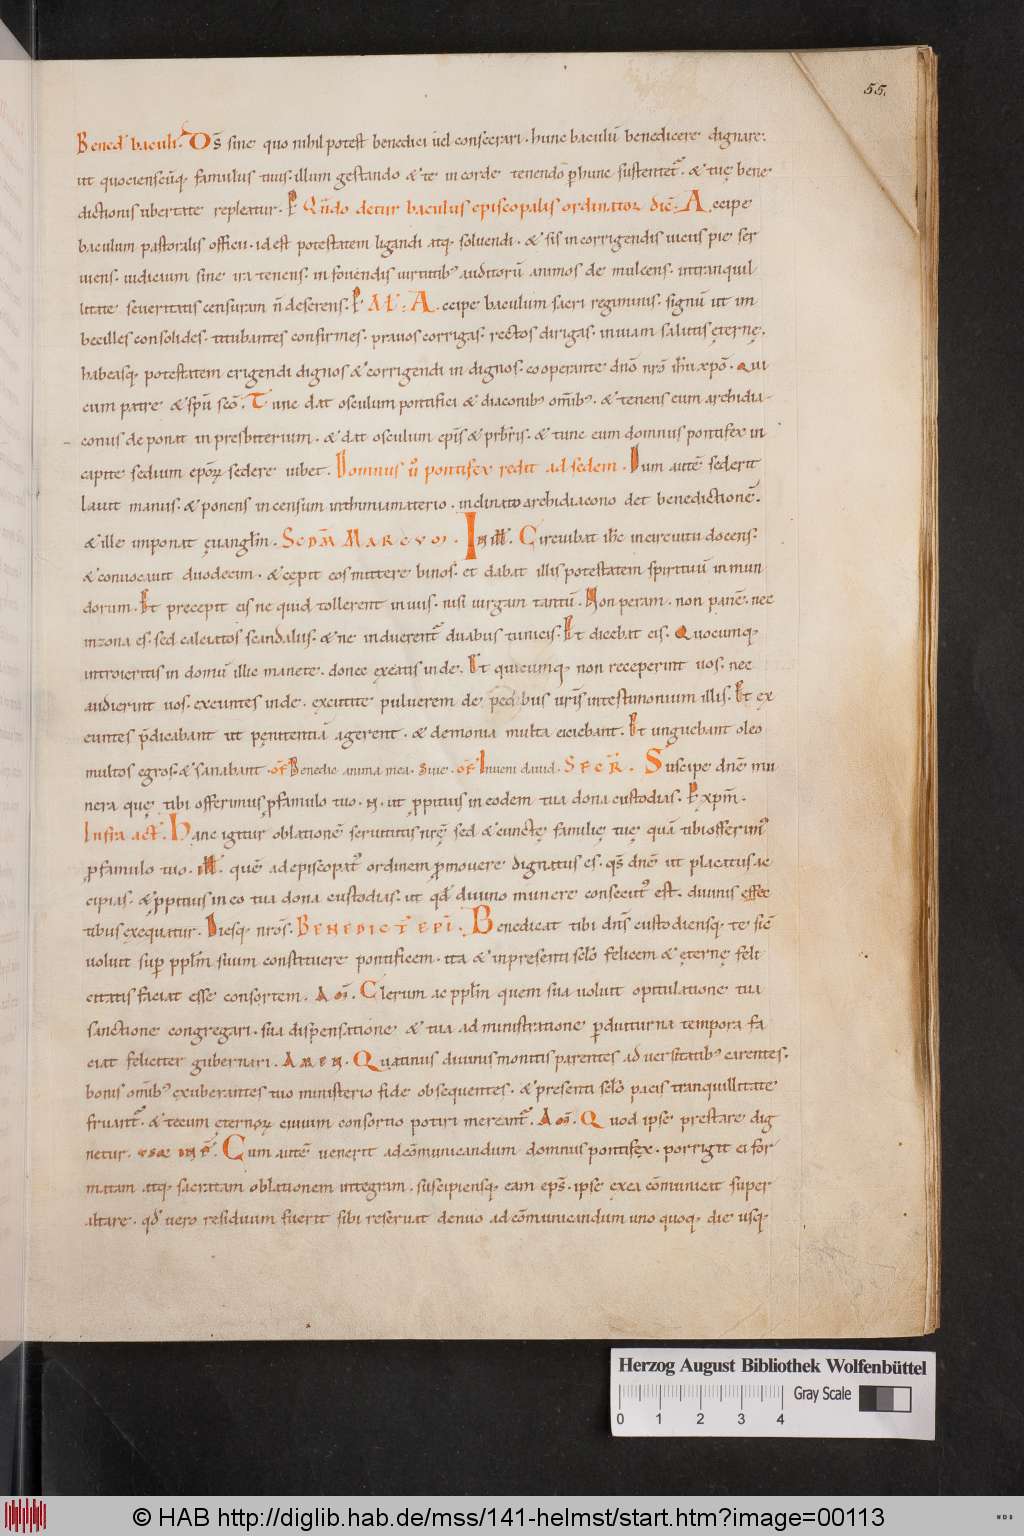 55.
Bened̄ baculi. D̄s sine quo nihil potest benedici uel consecrari. hunc baculū benedicere dignare.
ut quociensc̄uq; famulus tuus. illum gestando & te in corde tenendo ꝑ hunc sustentet᷑. & tuę bene
dictionis ubertate repleatur. P̄ Qn̄do detur baculus episcopalis ordinator dic̄. Accipe
baculum pastoralis officii. id est potestatem ligandi atq; soluendi. & sis in corrigendis uiciis pie ser
uiens. iudicium sine ira tenens. in fouendis uirtutib; auditorū animos demulcens. in tranquil
litate seueritatis censuram n̄ deserens. P̄ AL̄. Accipe baculum sacri regiminis. signū ut im
becilles consolides. titubantes confirmes. prauos corrigas. rectos dirigas. in uiam salutis ęternę.
habeasq; potestatem erigendi dignos & corrigendi indignos. cooperante dn̄o nr̄o ih̄u xp̄o. Qui
cum patre & sp̄u sc̄o. Tunc dat osculum pontifici & diaconib; om̄ib;. & tenens eum archidia-
conus deponat in presbiterium. & dat osculum ep̄is & prb̄ris. & tunc eum domnus pontifex in
capite sedium ep̄oꝝ sedere iubet. Domnus ū pontifex redit ad sedem. Dum autē sederit
lauit manus. & ponens incensum in thimiamaterio. inclinato archidiacono det benedictionē.
& ille imponat ęuangl̄m. SCDM̄ MARCUM. IN ILL̄. Circuibat ih̄c in circuitu docens.
& conuocauit duodecim. & cępit eos mittere binos. et dabat illis potestatem spirituū inmun
dorum. Et precepit eis ne quid tollerent in uiis. nisi uirgam tantū. Non peram. non panē. nec
in zona ęs. sed calciatos scandaliis. & ne induerent᷑ duabus tunicis. Et dicebat eis. Quocumq;
introieritis in domū illic manete. donec exeatis inde. Et quicumq; non receperint uos. nec
audierint uos. exeuntes inde. excutite puluerem de pedibus ur̄is in testimonium illis. Et ex
euntes p̄dicabant ut pęnitentiā agerent. & demonia multa eiciebant. Et unguebant oleo
multos egros. & sanabant. OF̄ Benedic anima mea. Siue. OF̄ Inueni dauid. SECR̄. Suscipe dn̄e mu
nera quę tibi offerimus ꝓ famulo tuo. N. ut ꝓpitius in eodem tua dona custodias. P xp̄m.
Infra act̄. Hanc igitur oblationē seruitutis nr̄ę sed & cunctę familię tuę quā tibi offerim᷒
ꝓ famulo tuo. ILL̄. quē ad episcopat᷒ ordinem ꝓmouere dignatus es. qs̄ dn̄e ut placatus ac
cipias. & ꝓpitius in eo tua dona custodias. ut qd̄ diuino munere consecut᷒ est. diuinis effec
tibus exequatur. Diesq; nr̄os. BENEDICT̄ EPĪ. Benedicat tibi dn̄s custodiensq; te sic̄
uoluit sup̄ ppl̄m suum constituere pontificem. ita & in presenti sc̄lo felicem & ęternę feli
citatis faciat esse consortem. AM̄. Clerum ac ppl̄m quem sua uoluit opitulatione tua
sanctione congregari. sua dispensatione & tua administratione ꝑ diuturna tempora fa
ciat feliciter gubernari. AMEN. Quatinus diuinis monitis parentes aduersitatib; carentes.
bonis om̄ib; exuberantes tuo ministerio fide obsequentes. & presenti sc̄lo pacis tranquillitate
fruant᷑. & tecum ęternoꝝ ciuium consortio potiri mereant᷑. AM̄. Quod ipse prestare dig
netur. Cum autē uenerit ad cōmunicandum domnus pontifex. porrigit ei for
matam atq; sacratam oblationem integram. suscipiensq; eam ep̄s. ipse ex ea cōmunicat super
altare. qd̄ uero residuum fuerit sibi reseruat denuo ad cōmunicandum unoquoq; die usq;
Herzog August Bibliothek Wolfenbüttel
Gray Scale
0 1 2 3 4
© HAB http://diglib.hab.de/mss/141-helmst/start.htm?image=00113